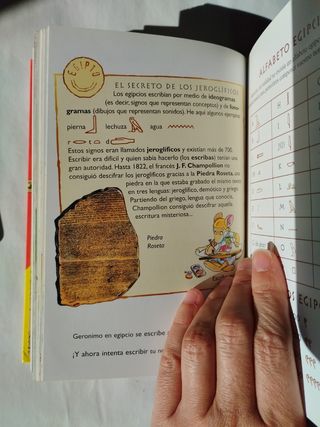 EGIPCIO
EL SECRETO DE LOS JEROGLÍFICOS
Los egipcios escribían por medio de ideogramas
(es decir, signos que representan conceptos) y de fono-
gramas (dibujos que representan sonidos). He aquí algunos ejemplos:
pierna lechuza agua
r t d
Estos signos eran llamados jeroglíficos y existían más de 700.
Escribir era difícil y quien sabía hacerlo (los escribas) tenían una
gran autoridad. Hasta 1822, el francés J. F. Champollion no
consiguió descifrar los jeroglíficos gracias a la Piedra Roseta, una
piedra en la que estaba grabado el mismo texto
en tres lenguas: jeroglífico, demótico y griego.
Partiendo del griego, lengua que conocía,
Champollion consiguió descifrar aquella
escritura misteriosa...
Piedra
Roseta
Geronimo en egipcio se escribe
¡Y ahora intenta escribir tu
ALFABETO EGIPCI
H
I
L
M
N
O